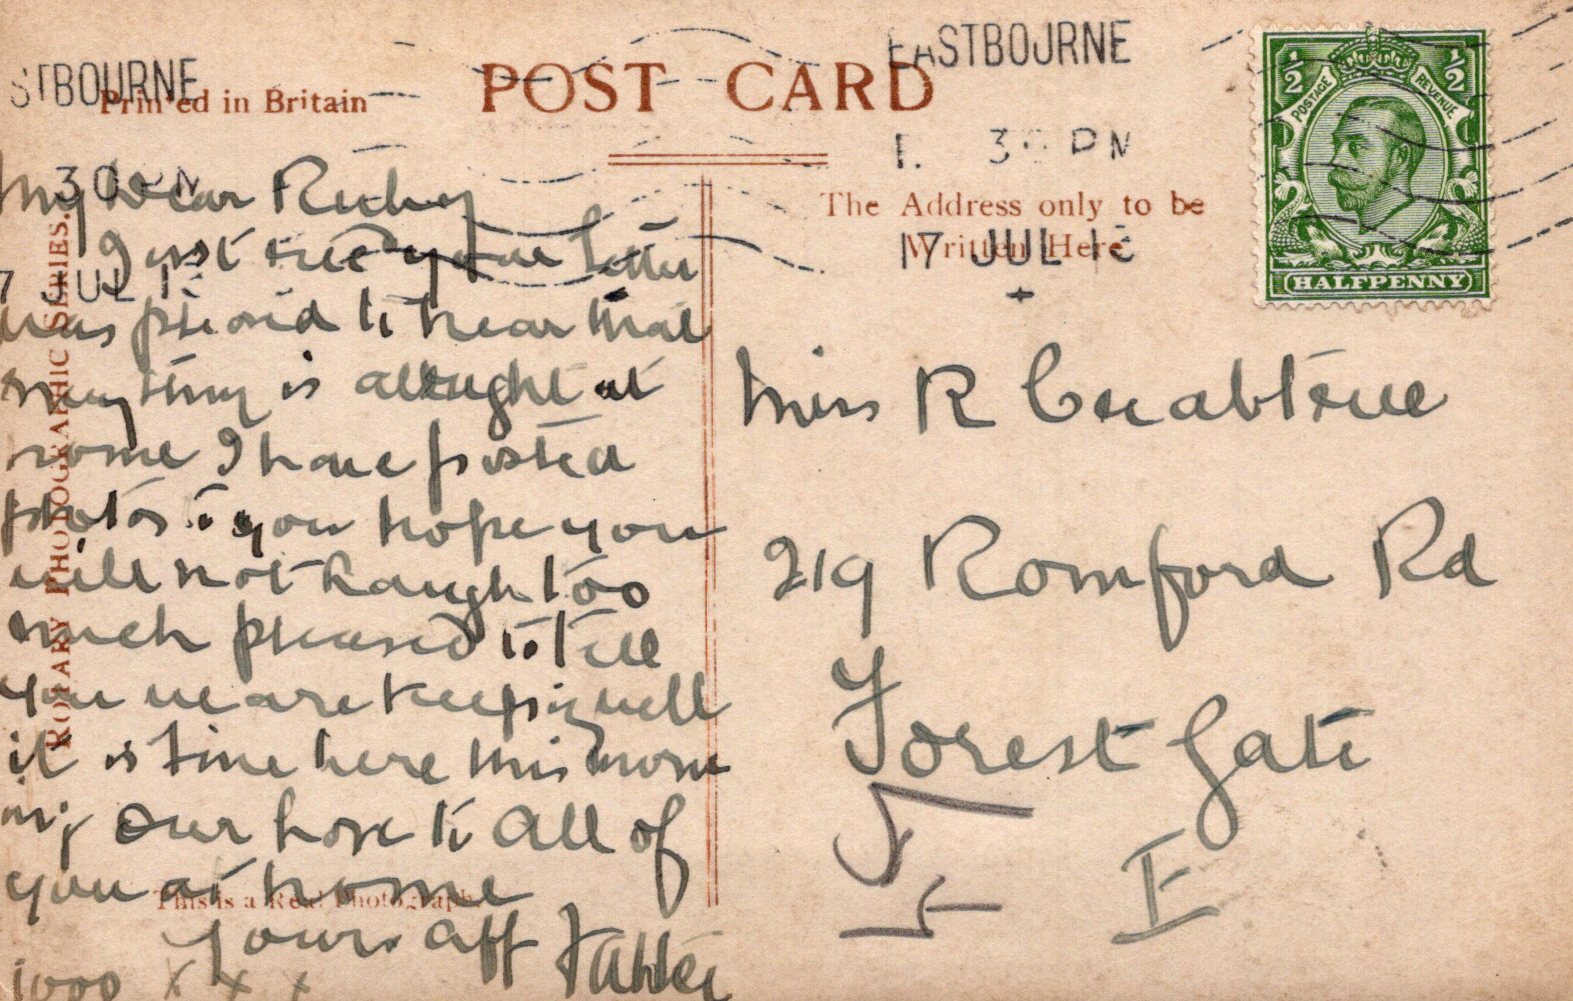 EASTBOURNE
STBOURNE
Printed in Britain
POST CARD
1/2
1/2
POSTAGE
REVENUE
HALFPENNY
30 PM
PM
The Address only to be
Written Here
17 JUL
7 JUL
ROTARY PHOTOGRAPHIC SERIES.
My Dear Ruby
Just recd your letter
was pleased to hear that
everything is allright at
home I have posted
photos to you hope you
will not laugh too
much pleased to tell
you we are keeping well
it is fine here this morn
ing our love to all of
you at home
Yours aff Father
1000 x x x
This is a Real Photograph
Miss R Crabtree
219 Romford Rd
Forest Gate
E